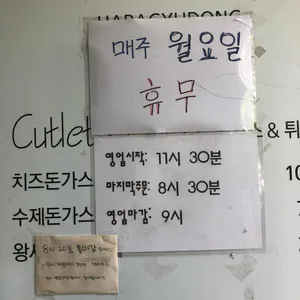 HARAGYUDONG
매주 월요일
휴무
Cutlet
스 & 튀
영업시작: 11시 30분
마지막주문: 8시 30분
영업마감: 9시
치즈돈가스
수제돈가스
왕
10
8시 20분